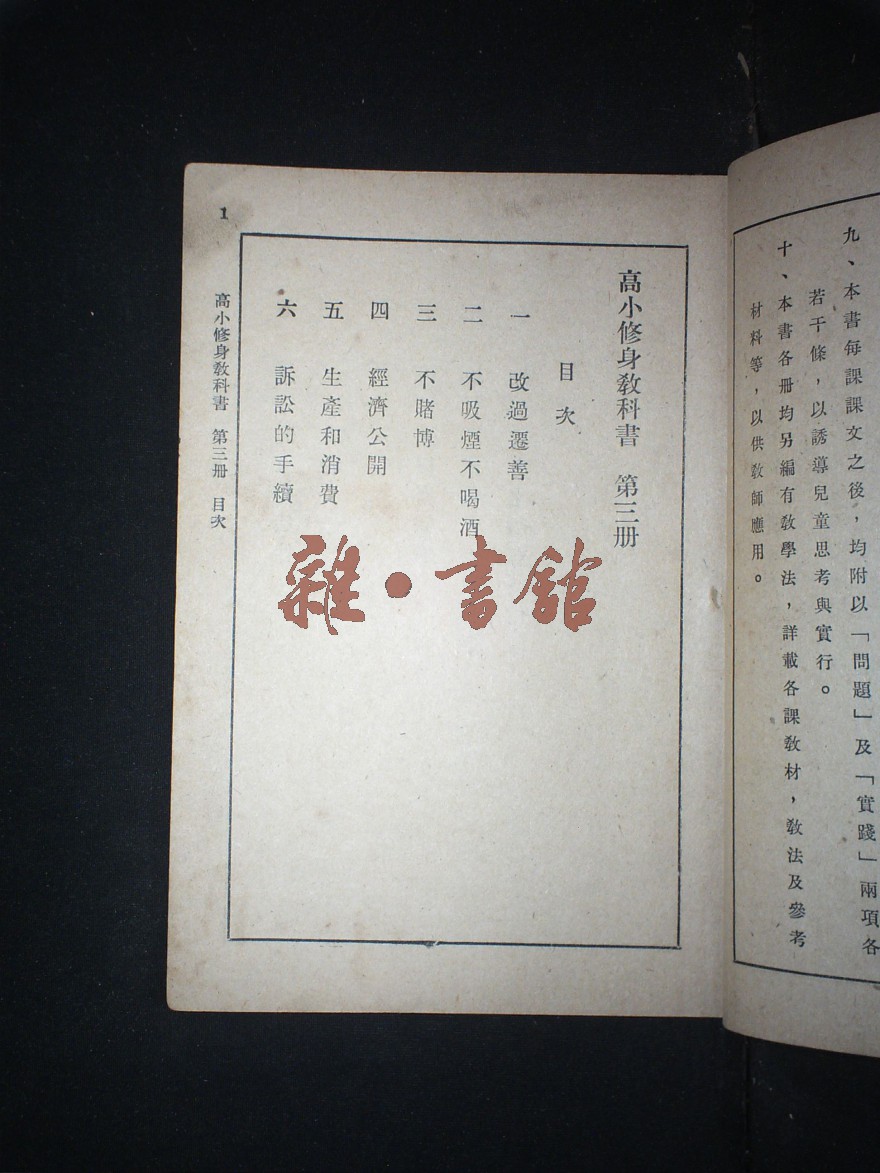 九、本書每課課文之後，均附以「問題」及「實踐」兩項各
若干條，以誘導兒童思考與實行。
十、本書各册均另編有敎學法，詳載各課敎材，敎法及參考
材料等，以供敎師應用。
高小修身敎科書　第三册
目次
一　改過遷善
二　不吸煙不喝酒
三　不賭博
四　經濟公開
五　生產和消費
六　訴訟的手續
高小修身敎科書　第三册　目次
1
雜·書館